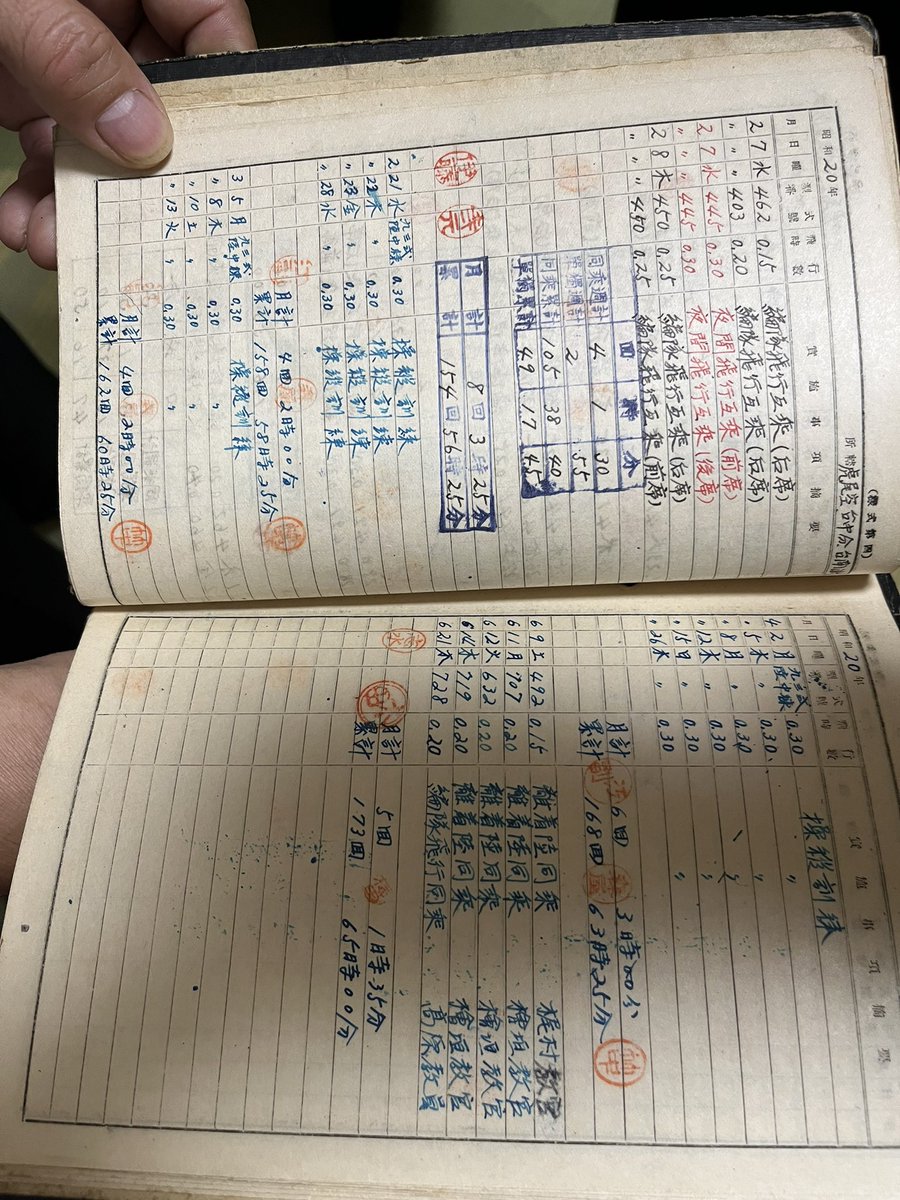 (様式第四)
所轄 虎尾空台中分台南派
昭和20年
月日曜 型式番號 飛行時數 實施事項 摘要
2 7 水 462 0.15 編隊飛行互乘(右席)
〃 〃 403 0.20 編隊飛行互乘(右席)
2 7 水 445 0.30 夜間飛行互乘(前席)
〃 〃 445 0.30 夜間飛行互乘(後席)
2 8 木 450 0.25 編隊飛行互乘(右席)
〃 〃 450 0.25 編隊飛行互乘(前席)
回 時 分
同乘週計 4 1 30
單獨週計 2 55
同乘累計 105 38 40
單獨累計 49 17 45
月計 8回 3時25分
累計 154回 56時25分
伊藤
2 21 水 九三式陸中練 0.30 操縦訓練
〃 22 木 〃 0.30 操縦訓練
〃 23 金 〃 0.30 操縦訓練
〃 28 水 〃 0.30 操縦訓練
月計 4回 2時00分
累計 158回 58時25分
3 5 月 九三式陸中練 0.30 操縦訓練
〃 8 木 〃 0.30 〃
〃 10 土 〃 0.30 〃
〃 13 火 〃 0.30 〃
月計 4回 2時00分
累計 162回 60時25分
昭和20年
月日曜 型式番號 飛行時數 實施事項 摘要
4 2 月 九三式陸中練 0.30 操縦訓練
〃 5 木 〃 0.30 〃
〃 8 月 〃 0.30 〃
〃 12 木 〃 0.30 〃
〃 15 日 〃 0.30 〃
〃 26 木 〃 0.30 〃
月計 6回 3時00分
累計 168回 63時25分
田中
6 9 土 492 0.15 離着陸同乘 梶村教官
6 11 月 707 0.20 離着陸同乘 檜垣教官
6 12 火 632 0.20 離着陸同乘 檜垣教官
6 14 木 719 0.20 離着陸同乘 檜垣教官
6 21 木 728 0.20 編隊飛行同乘 高原教員
月計 5回 1時35分
累計 173回 65時00分